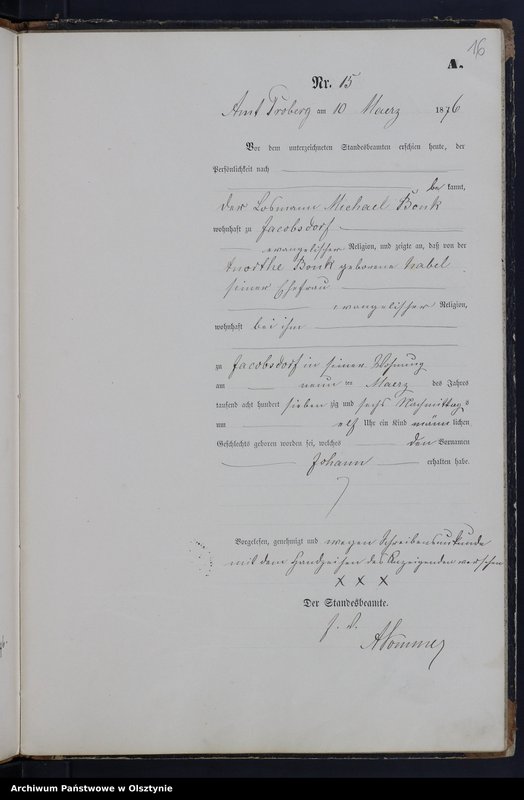 16
A.
Nr. 15
Amt Proberg am 10 Maerz 1876
Vor dem unterzeichneten Standesbeamten erschien heute, der
Persönlichkeit nach
be kannt,
der Losmann Michael Bonk
wohnhaft zu Jacobsdorf
evangelischer Religion, und zeigte an, daß von der
Bonk geborene
seiner Ehefrau
evangelischer Religion,
wohnhaft bei ihm
zu Jacobsdorf in seiner Wohnung
am neun ten Maerz des Jahres
tausend acht hundert sieben zig und sechs Nachmittags
um elf Uhr ein Kind männ lichen
Geschlechts geboren worden sei, welches den Vornamen
Johann erhalten habe.
Vorgelesen, genehmigt und wegen Schreibensunkunde
mit dem Handzeichen des Anzeigenden versehen
X X X
Der Standesbeamte.
Archiwum Państwowe w Olsztynie